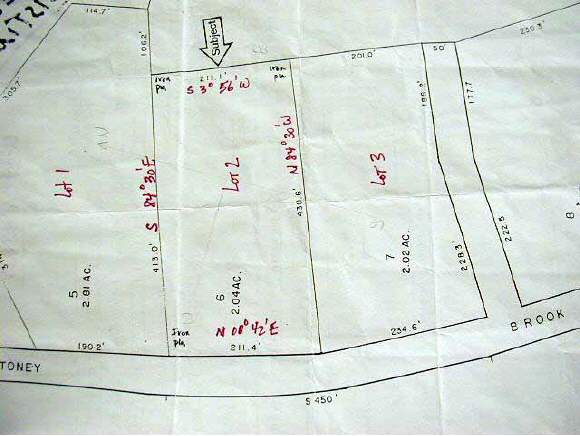 114.7'
106.2'
305.7'
Subject
211.1'
S 3° 56' W
Iron
pin
Iron
pin
201.0'
50'
250.3'
177.7
N 84° 30' W
430.6'
S 84° 30' E
413.0'
Lot 1
Lot 2
Lot 3
5
2.81 AC.
6
2.04 AC.
7
2.02 AC.
228.3'
222.5
8
Iron
pin
N 08° 42' E
190.2'
211.4'
234.6'
TONEY
BROOK
S 450'